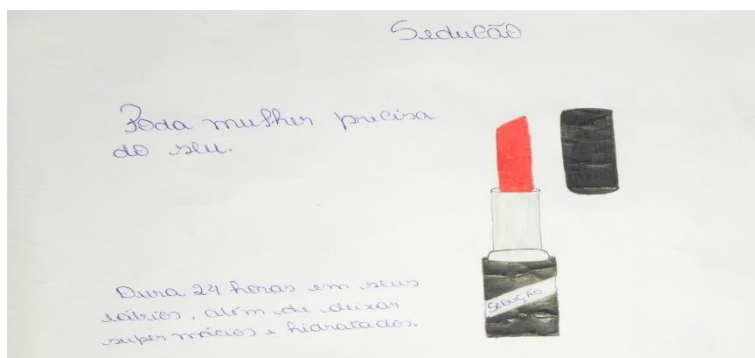 Sedução
Toda mulher precisa
do seu.
Dura 24 horas em seus
lábios, além de deixar
super mácios e hidratados.
SEDUÇÃO